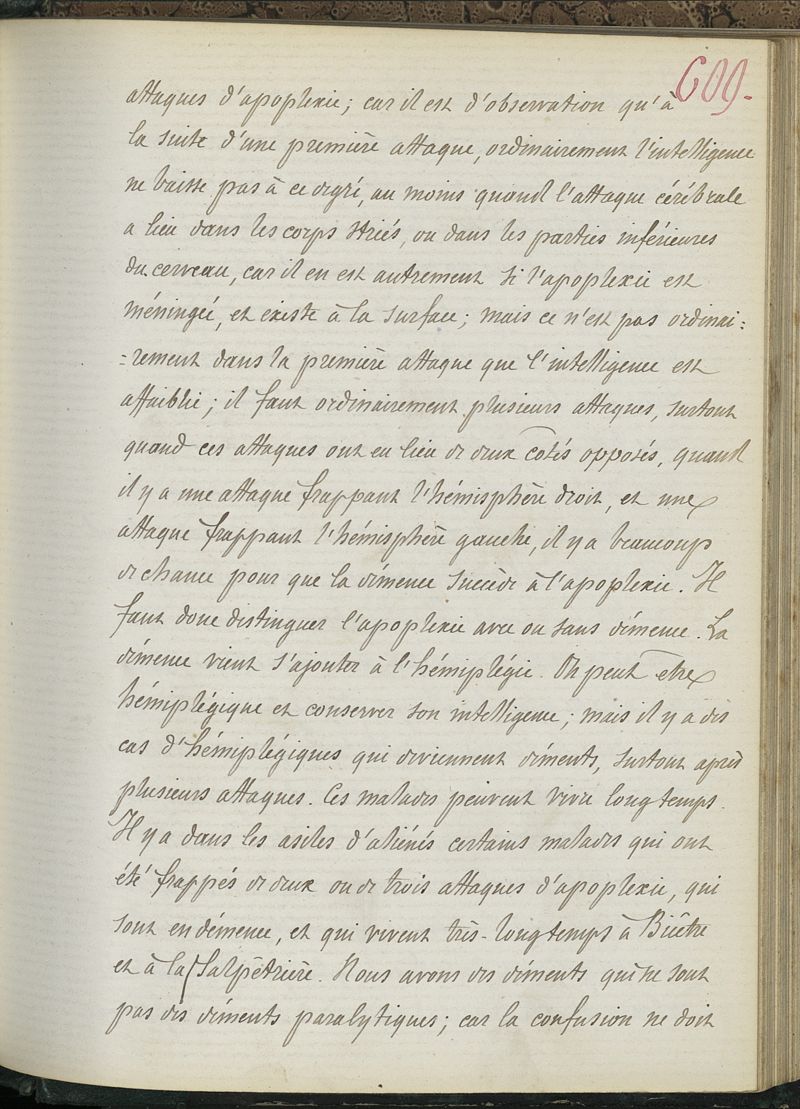 609.
attaques d'apoplexie; car il est d'observation qu'à
la suite d'une première attaque, ordinairement l'intelligence
ne baisse pas à ce degré, au moins quand l'attaque cérébrale
a lieu dans les corps striés, ou dans les parties inférieures
du cerveau, car il en est autrement si l'apoplexie est
méningée, et existe à la surface; mais ce n'est pas ordinai:
:rement dans la première attaque que l'intelligence est
affaiblie; il faut ordinairement plusieurs attaques, surtout
quand ces attaques ont eu lieu de deux cotés opposés, quand
il y a une attaque frappant l'hémisphère droit, et une
attaque frappant l'hémisphère gauche, il y a beaucoup
de chance pour que la démence succède à l'apoplexie. Il
faut donc distinguer l'apoplexie avec ou sans démence. La
démence vient s'ajouter à l'hémiplégie. On peut etre
hémiplégique et conserver son intelligence; mais il y a des
cas d'hémiplégiques qui deviennent déments, surtout après
plusieurs attaques. Ces malades peuvent vivre longtemps.
Il y a dans les asiles d'aliénés certains malades qui ont
été frappés de deux ou de trois attaques d'apoplexie, qui
sont en démence, et qui vivent très-longtemps à Bicêtre
et à la Salpêtrière. Nous avons des déments qui ne sont
pas des déments paralytiques; car la confusion ne doit